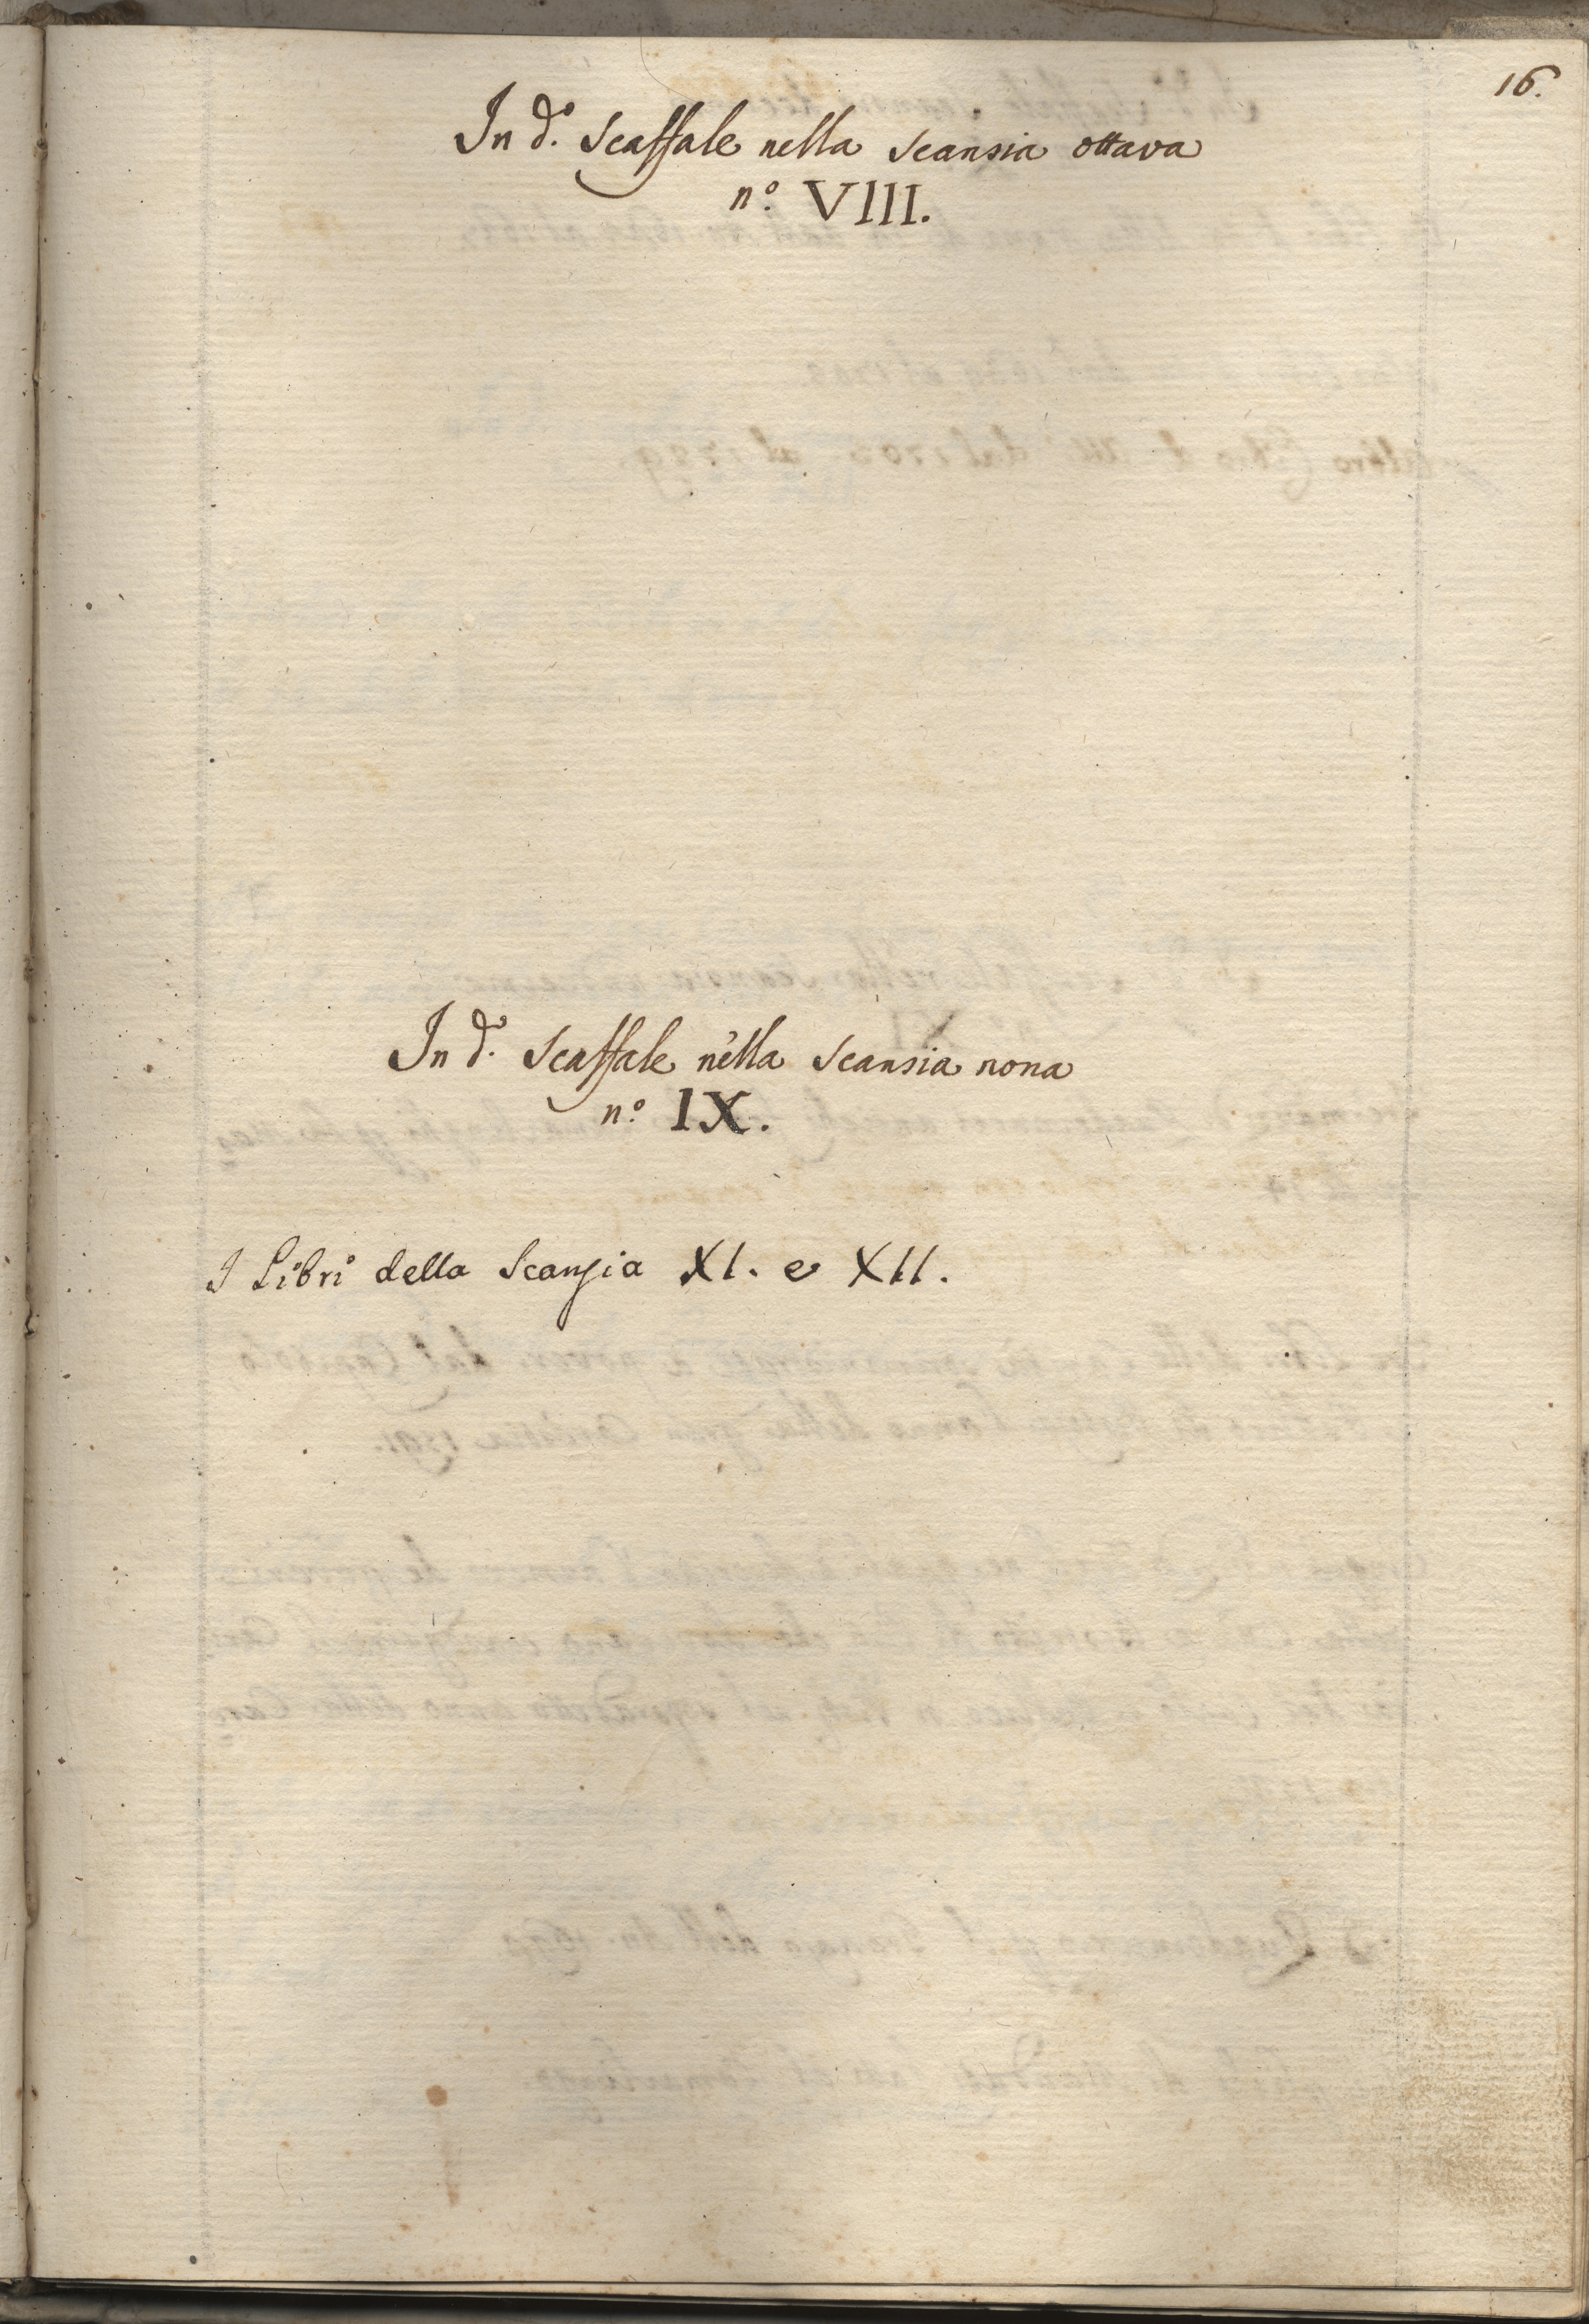 16.
In d.º Scaffale nella Scansia ottava
n.º VIII.
In d.º Scaffale nella Scansia nona
n.º IX.
I Libri della Scansia XI. e XII.